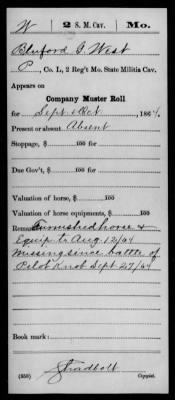 W 2 S. M. Cav. Mo.
Bluford G. West
P, Co. L, 2 Reg't Mo. State Militia Cav.
Appears on
Company Muster Roll
for Sept & Oct, 1864.
Present or absent Absent
Stoppage, $ 100 for
Due Gov't, $ 100
Valuation of horse, $ 100
Valuation of horse equipments, $ 100
Remarks: Furnished horse &
Equip to Aug 12/64
Missing since battle of
Pilot Knob Sept 27/64
Book mark:
(358) Copyist.